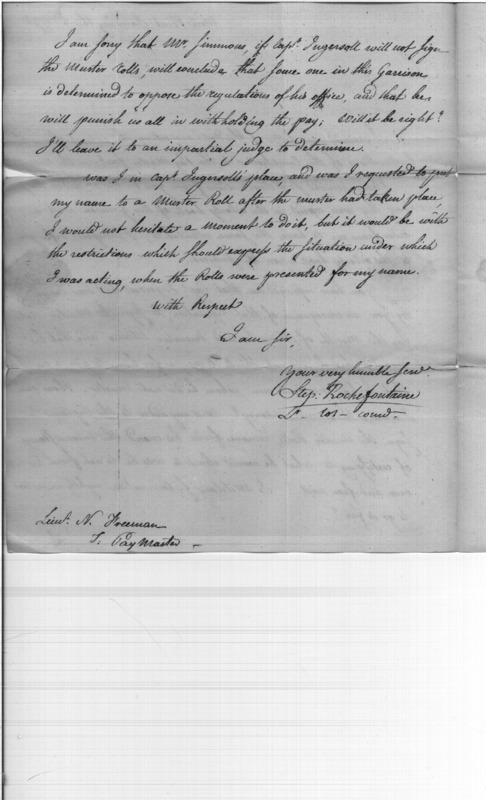 I am sorry that Mr. Simmons, if Capt. Ingersoll will not sign
the Muster Rolls, will conclude that some one in this Garrison
is determined to oppose the regulations of his office, and that he
will punish us all in withholding the pay; Will it be right?
I'll leave it to an impartial judge to determine.
was I in Capt. Ingersoll's place, and was I requested to put
my name to a Muster Roll after the muster had taken place,
I would not hesitate a moment to do it, but it would be with
the restrictions which should express the situation under which
I was acting, when the Rolls were presented for my name.
with Respect
I am Sir,
Your very humble Servt.
Step: Rochefontaine
Lt. Col. Comd.
Lieut. N. Freeman
Pay Master